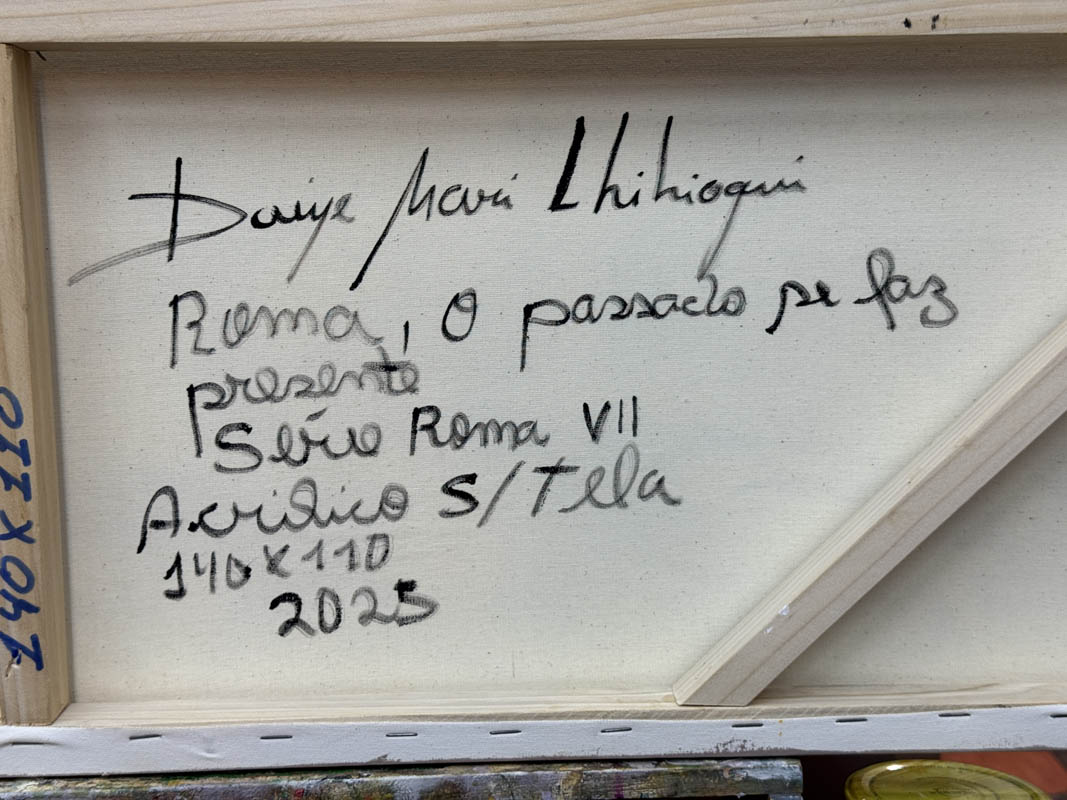 Mari
Roma, O passado se faz
presente
Série Roma VII
Acrilico S/Tela
140x110
2025
140X110